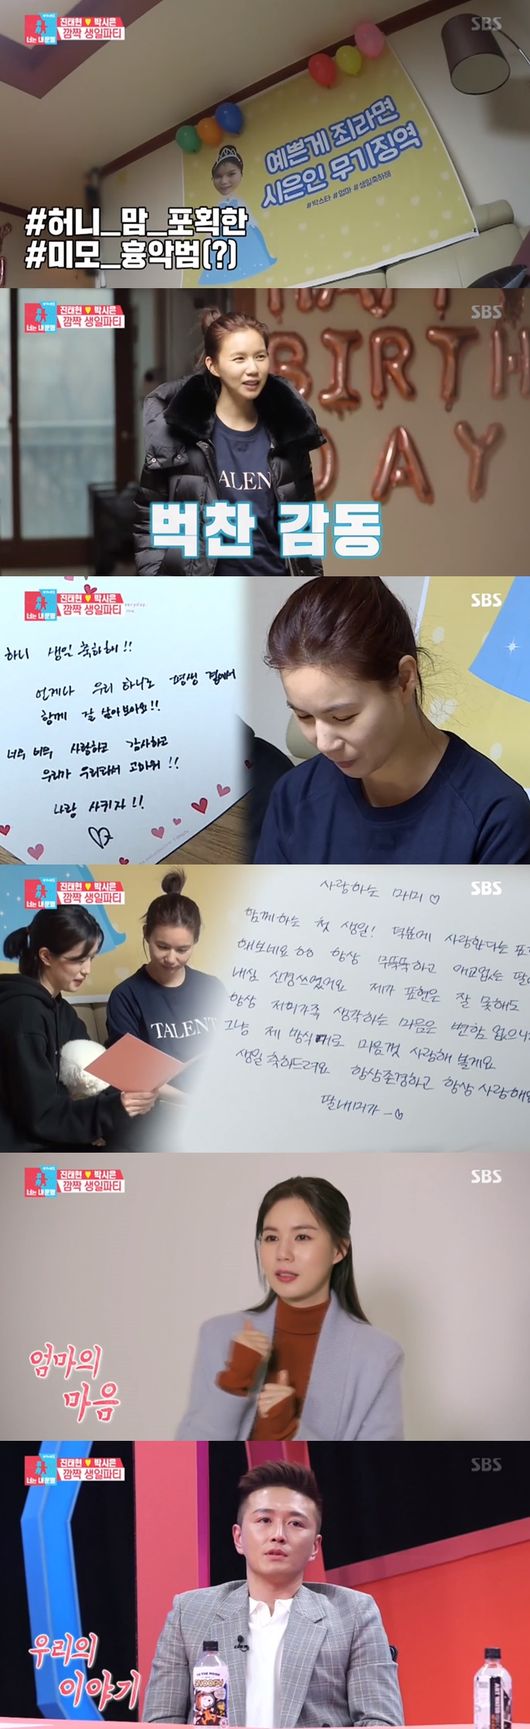 진태현 ♥ 박시은
깜짝 생일파티
너는 내 운명
SBS
예쁜게 죄라면
시은인 무기징역
#박스타 #엄마 #생일축하해
#허니_맘_포획한
#미모_흉악범(?)
진태현 ♥ 박시은
깜짝 생일파티
너는 내 운명
SBS
BIRTH
DAY
TALENT
벅찬 감동
진태현 ♥ 박시은
깜짝 생일파티
너는 내 운명
SBS
하니 생일 축하해!!
언제나 우리 하니로 평생 곁에서
함께 잘 살아보아요!!
너무 너무 사랑하고 감사하고
우리가 우리라서 고마워!!
나랑 사귀자!!
진태현 ♥ 박시은
깜짝 생일파티
너는 내 운명
SBS
TALENT
사랑하는 마미 ♡
함께하는 첫 생일! 덕분에 사랑한다는 표
해보네요 항상 무뚝뚝하고 애교없는 딸이
내심 신경쓰였어요 제가 표현은 잘 못해도
항상 저희가족 생각하는 마음은 변함 없으니
그냥 제 방식대로 마음껏 사랑해 볼게요
생일 축하드려요 항상존경하고 항상 사랑해요
진태현 ♥ 박시은
깜짝 생일파티
너는 내 운명
SBS
엄마의
마음
진태현 ♥ 박시은
깜짝 생일파티
너는 내 운명
SBS
우리의
이야기